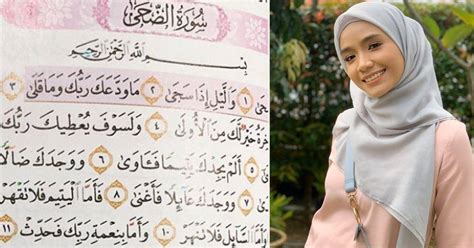 سُورَةُ الضُّحَىٰ
بِسْمِ اللَّهِ الرَّحْمَٰنِ الرَّحِيمِ
١ وَالَّيْلِ إِذَا سَجَىٰ ٢ مَا وَدَّعَكَ رَبُّكَ وَمَا قَلَىٰ ٣
خَيْرٌ لَّكَ مِنَ الْأُولَىٰ ٤ وَلَسَوْفَ يُعْطِيكَ رَبُّكَ
٥ أَلَمْ يَجِدْكَ يَتِيمًا فَآوَىٰ ٦ وَوَجَدَكَ ضَالًّا
٧ وَوَجَدَكَ عَائِلًا فَأَغْنَىٰ ٨ فَأَمَّا الْيَتِيمَ فَلَا تَقْهَرْ
السَّائِلَ فَلَا تَنْهَرْ ١٠ وَأَمَّا بِنِعْمَةِ رَبِّكَ فَحَدِّثْ ١١